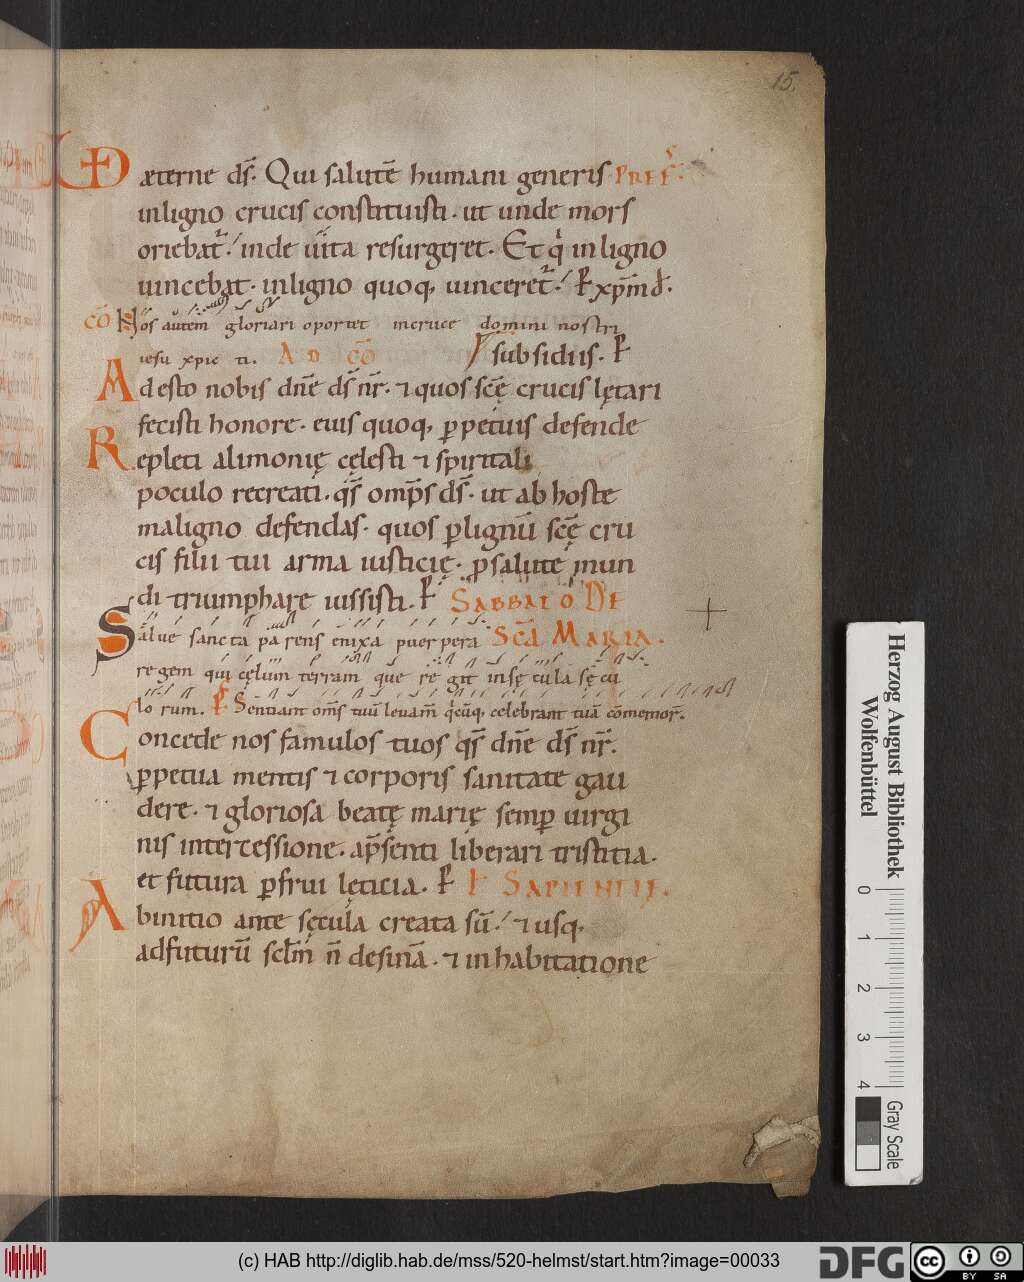 15.
VD æterne ds̄. Qui salutē humani generis PREF.
inligno crucis constituisti. ut unde mors
oriebat᷑. inde uita resurgeret. Et q̇ inligno
uincebat. inligno quoq, uinceret᷑. P xp̄m d.
CŌ Nos autem gloriari oportet incruce domini nostri
iesu xpic ti. AD CŌ subsidiis. P
Adesto nobis dn̄e ds̄ nr̄. ⁊ quos scę̄ crucis lętari
fecisti honore. eius quoq, ꝑpetuis defende
Repleti alimonię cęlesti ⁊ spiritali
poculo recreati. qs̄ omp̄s ds̄. ut ab hoste
maligno defendas. quos ꝑlignū scę̄ cru
cis filii tui arma iusticię. ꝓsalute mun
di triumphare iussisti. P SABBATO DE
Salue sancta parens enixa puerpera SCA MARIA.
regem qui cęlum terram que regit insęcula sęcu
lorum. P Sentiant om̄s tuū leuam̄ q̇cūq, celebrant tuā cōmemor̄.
Concede nos famulos tuos qs̄ dn̄e ds̄ nr̄.
ꝑpetua mentis ⁊ corporis sanitate gau
dere. ⁊ gloriosa beatę marię semꝑ uirgi
nis intercessione. ap̄senti liberari tristitia.
et futura ꝑfrui lęticia. P L SAPIENTIĘ.
Abinitio ante sęcula creata sū. ⁊ usq,
adfuturū sclm̄ n̄ desinā. ⁊ inhabitatione
Herzog August Bibliothek
Wolfenbüttel
0 1 2 3 4
Gray Scale
(c) HAB http://diglib.hab.de/mss/520-helmst/start.htm?image=00033
DFG
cc BY SA